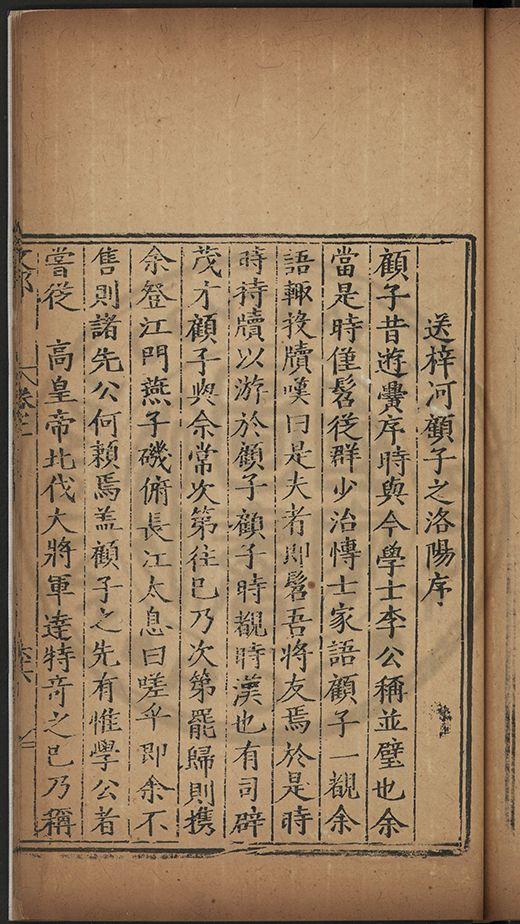 送梓河顧子之洛陽序
顧子昔遊黌序時與今學士李公稱並璧也余
當是時僅髫從群少治博士家語顧子一覩余
語輒投牘嘆曰是夫者即髫吾將友焉於是時
時待牘以游於顧子顧子時覩時漢也有司辟
茂才顧子與余常次第往已乃次第罷歸則携
余登江門燕子磯俯長江太息曰嗟乎即余不
售則諸先公何賴焉盖顧子之先有惟學公者
嘗從 高皇帝北伐大將軍達特奇之已乃稱